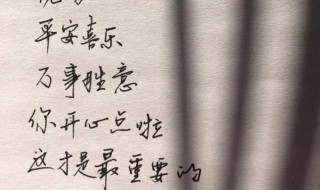 平安喜乐
万事胜意
你开心点啦
这才是最重要的